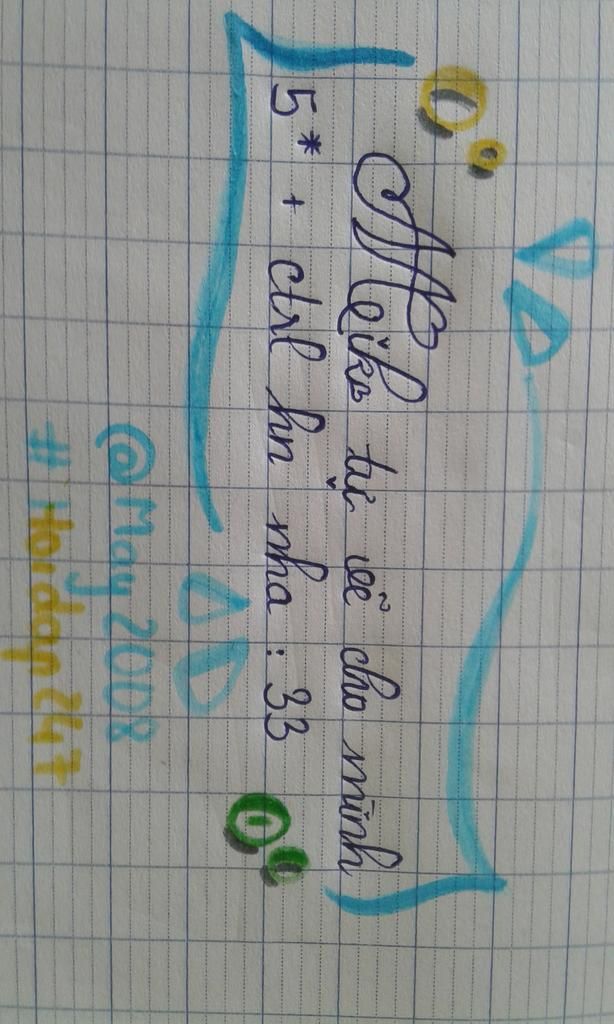 tự vẽ cho mình
5* + ctrl hn nha : 33
@May2008
#Hoidap247